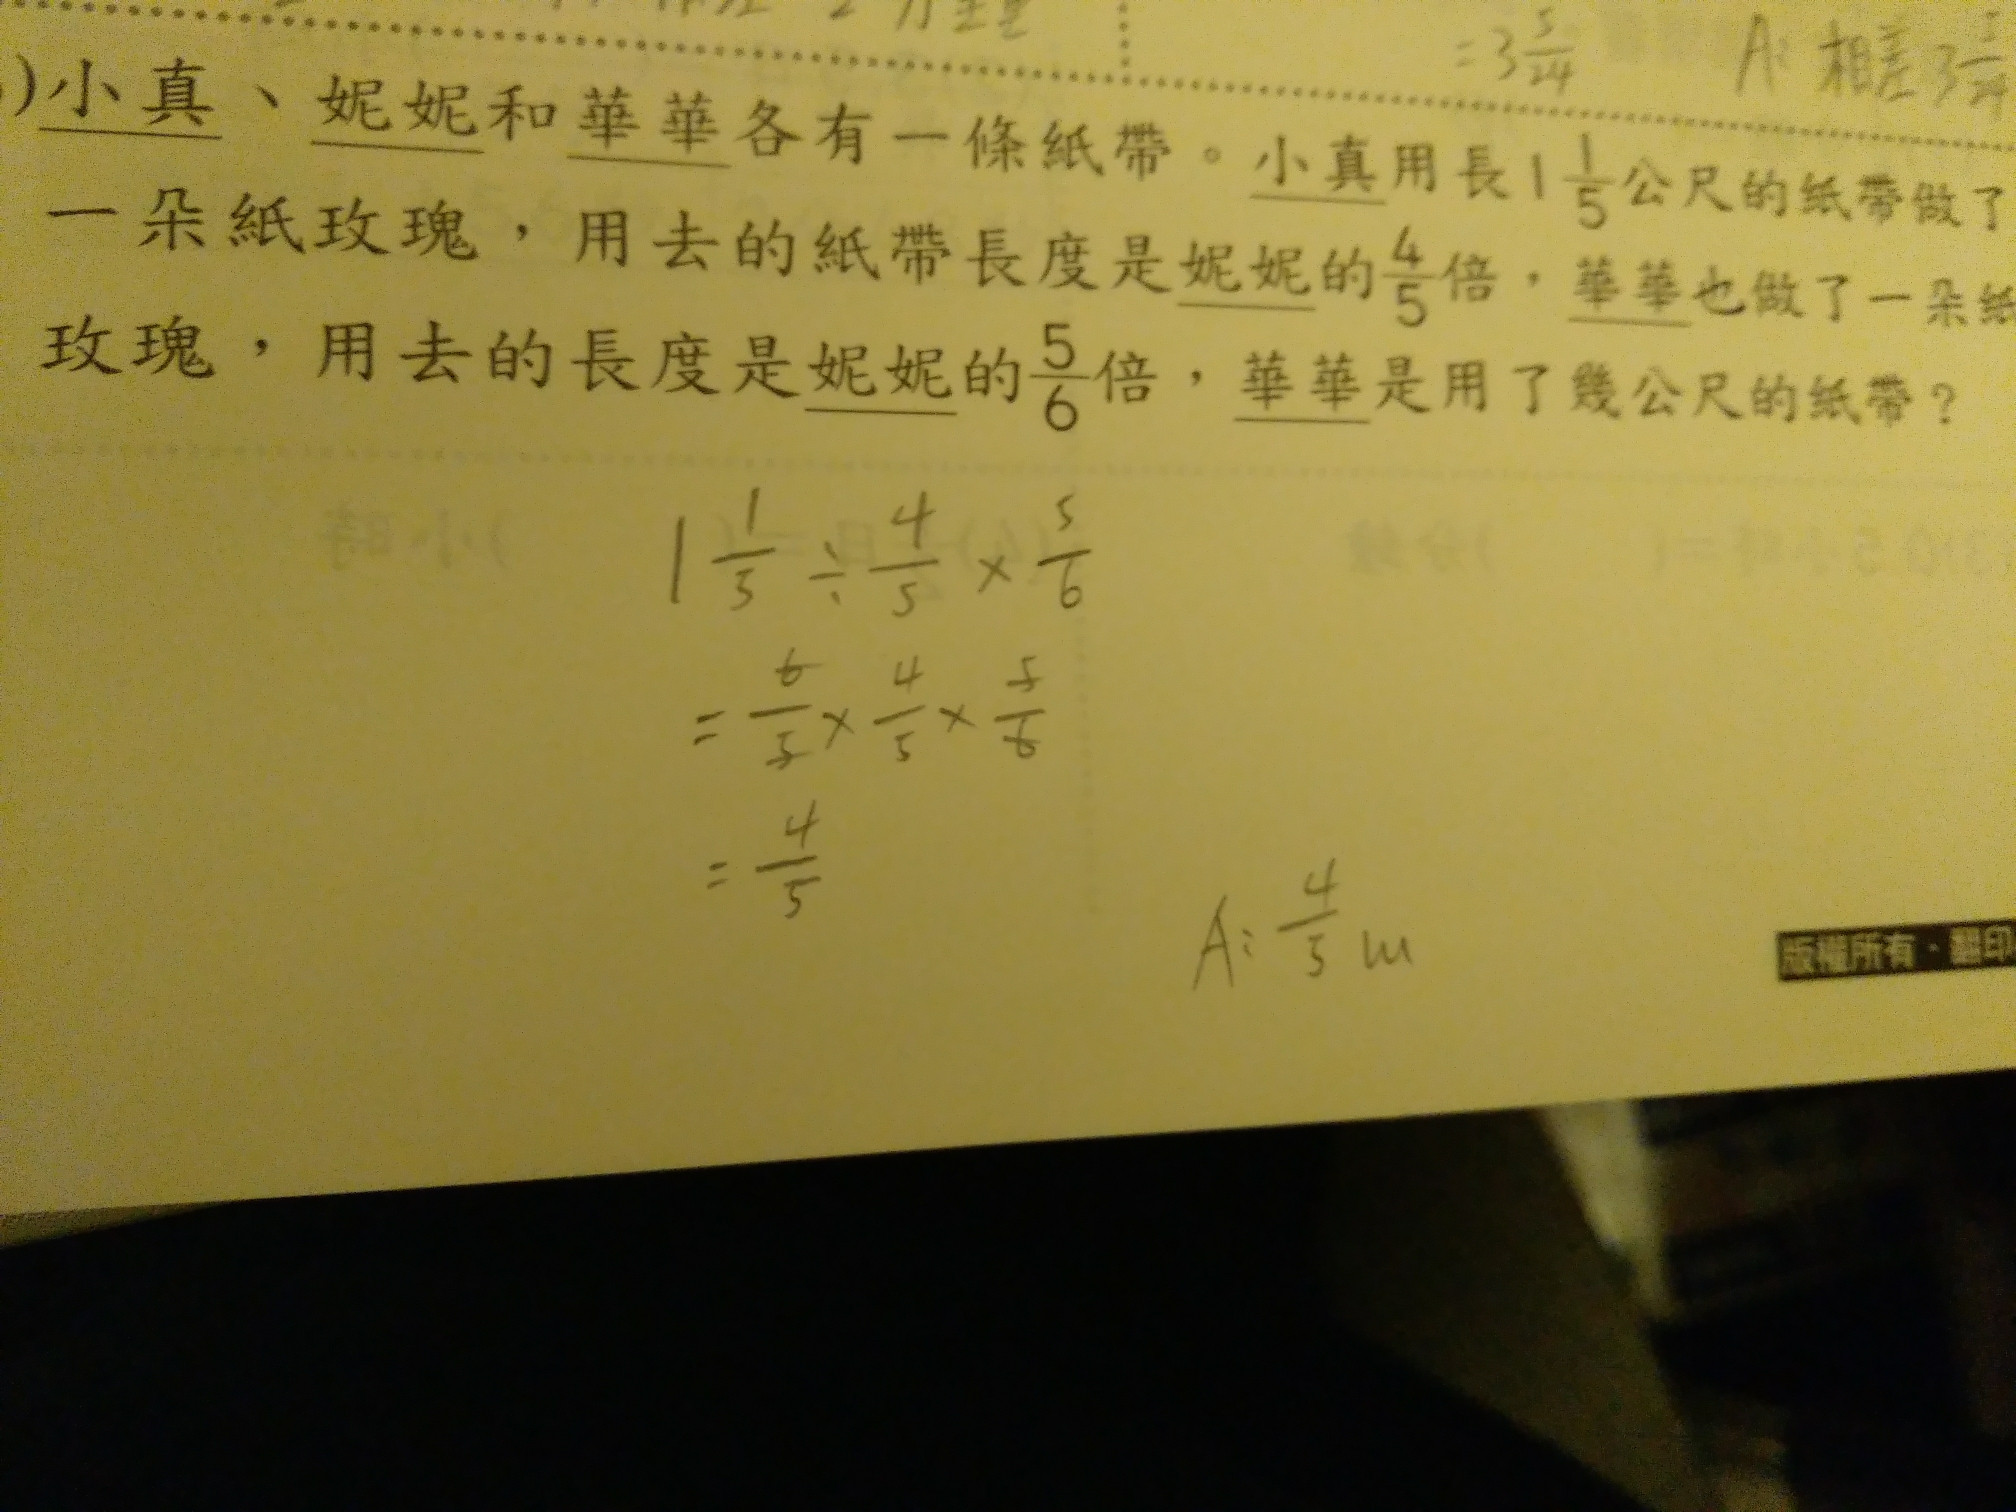 =3 5/24 A: 相差3
)小真、妮妮和華華各有一條紙帶。小真用長1 1/5公尺的紙帶做了
一朵紙玫瑰，用去的紙帶長度是妮妮的4/5倍，華華也做了一朵紙
玫瑰，用去的長度是妮妮的5/6倍，華華是用了幾公尺的紙帶？
1 1/5 ÷ 4/5 × 5/6
= 6/5 × 4/5 × 5/6
= 4/5
A: 4/5 m
版權所有·翻印